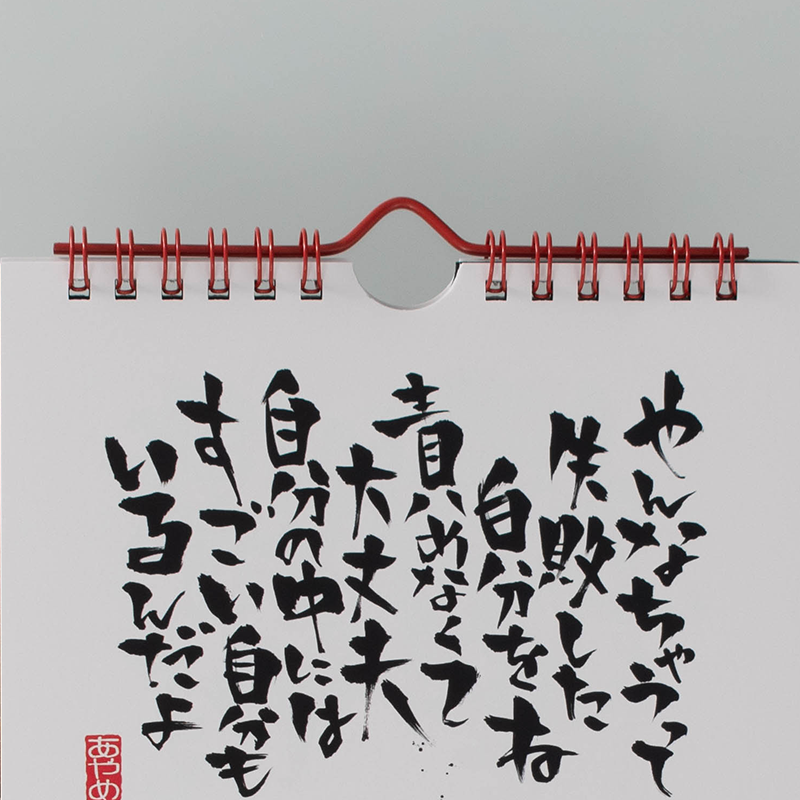 やんなちゃうって
失敗した
自分をね
責めなくて
大丈夫
自分の中には
すごい自分も
いるんだよ
あやめ